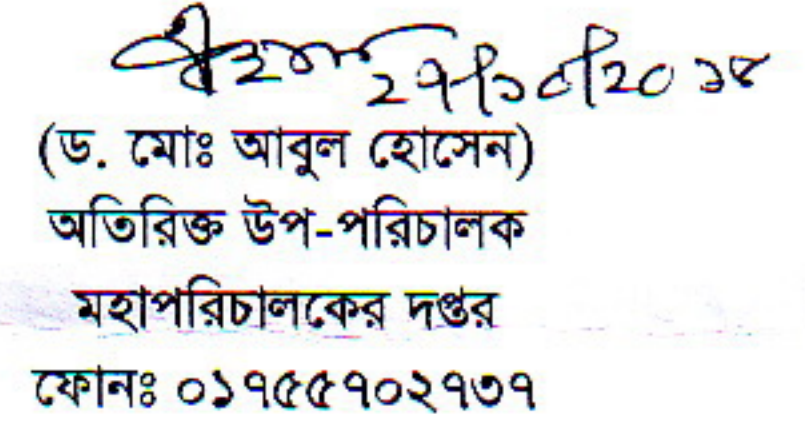 ২৭/১০/২০১৫
(ড. মোঃ আবুল হোসেন)
অতিরিক্ত উপ-পরিচালক
মহাপরিচালকের দপ্তর
ফোনঃ ০১৭৫৫৭০২৭৩৭